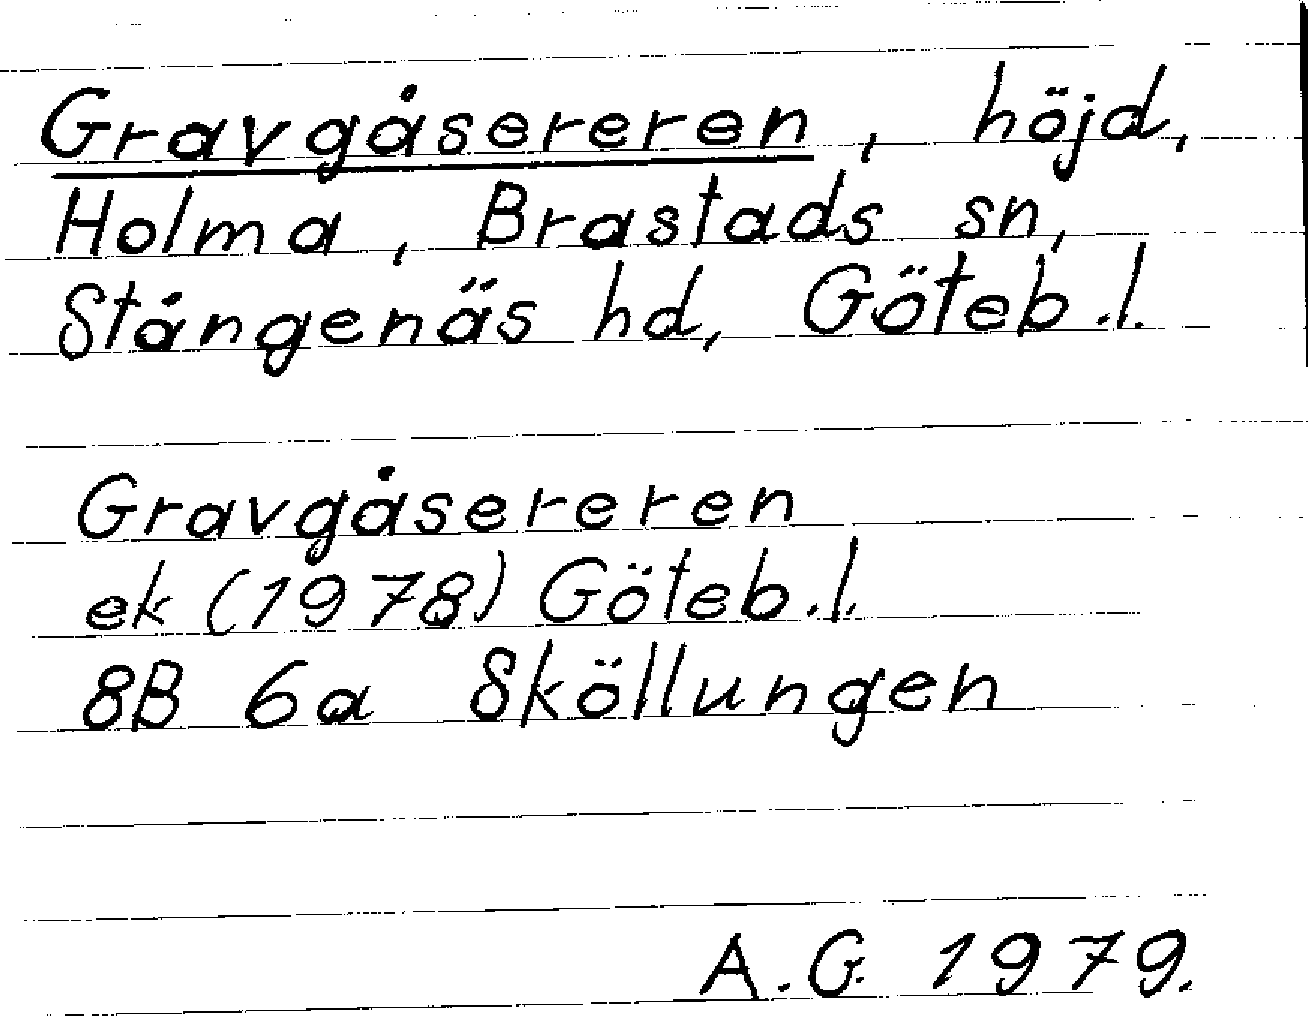 Gravgåsereren, höjd,
Holma, Brastads sn,
Stångenäs hd, Göteb.l.
Gravgåsereren
ek (1978) Göteb.l.
8B 6a Sköllungen
A.G. 1979.